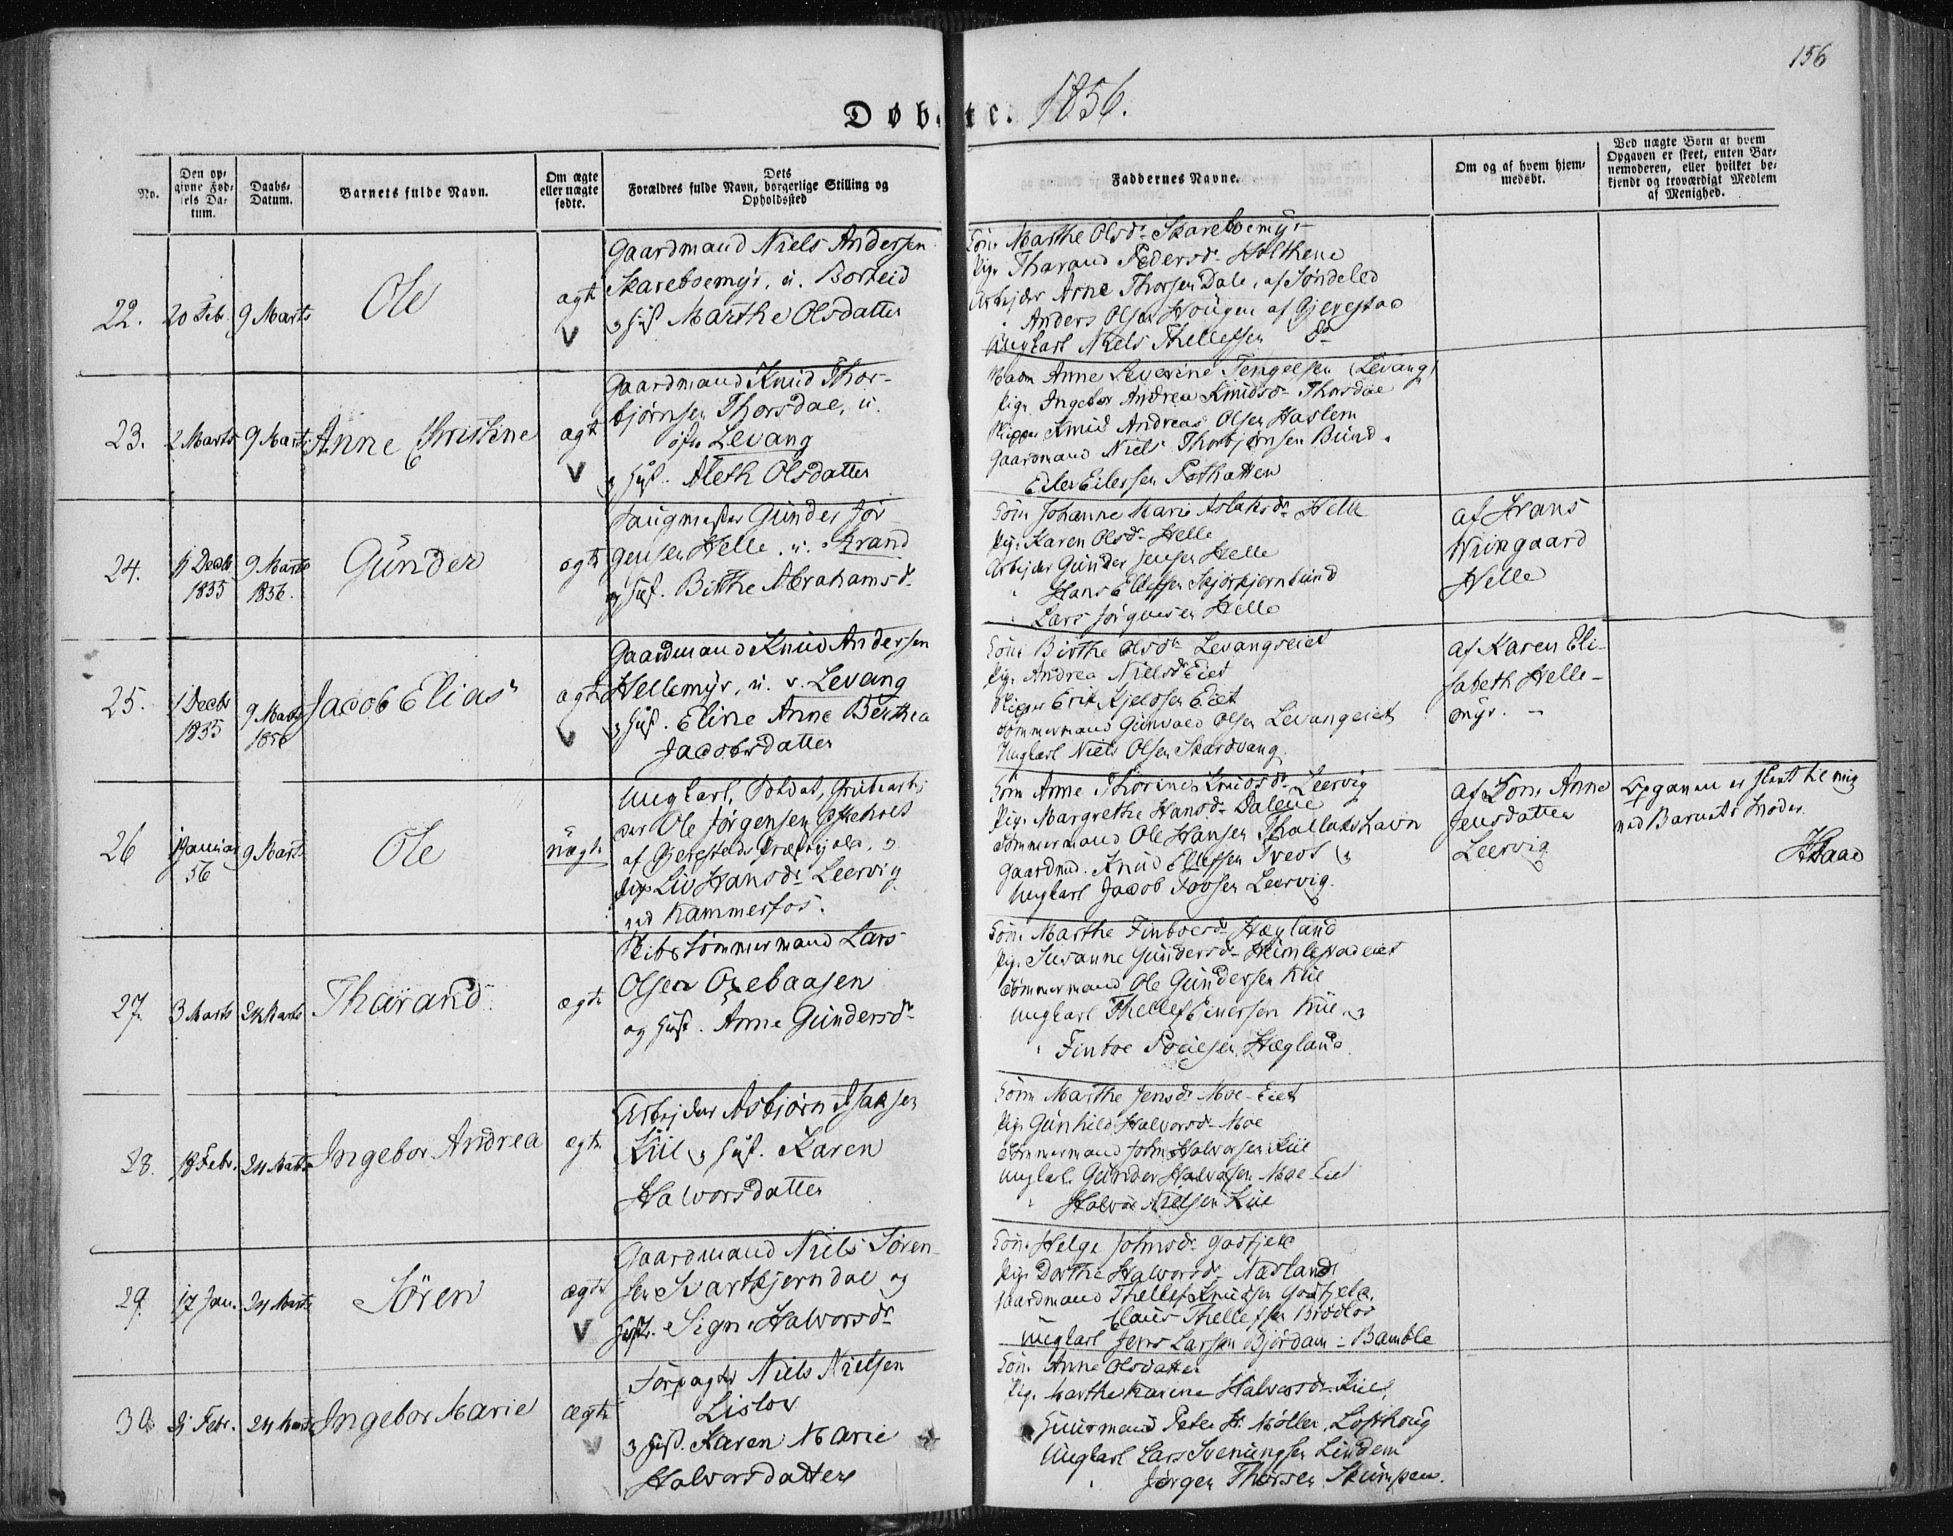 156
Døbte. 1856.
No.
Den op-
givne Fød-
sels Da-
tum.
Daabs-
Datum.
Barnets fulde Navn.
Om ægte
eller uægte
fødte.
Dets
Forældres fulde Navn, borgerlige Stilling og
Opholdssted
Faddernes Navne.
Om og af hvem hjem-
medøbt.
Ved uægte Børn af hvem
Opgaven er skeet, enten Bar-
nemoderen, eller hvilket be-
kjendt og troværdigt Medlem
af Menighed.
22.
20 Feb
9 Marts
Ole
ægte
V
Gaardmand Niels Andersen
Skareboemyr, u. Borteid
Marthe Olsdatter
Marthe Olsdr Skareboemyr
Pige Tharand Pedersdr Holthene
Arbejder Arne Thorsen Dale, af Søndeled
Anders Olsen Hougen af Gjerestad
Ungkarl Niels Thellefsen Do
23.
2 Marts
9 Marts
Anne Christine
ægte
V
Gaardmand Knud Thor-
bjørnsen Thorsdal, u.
øfre Levang
Aleth Olsdatter
Madm Anne Severine Tengelsen (Levang)
Pige Ingebor Andrea Knudsdr Thorsdal
Skipper Knud Andreas Olsen Haslem
Gaardmand Niels Thorbjørnsen Bund
Eiler Eilersen Pothatten
24.
9 Marts
1856.
1855
Günder
ægte
Günder Jør
gensen Helle, u. Strand
og Hust. Birthe Abrahamsdr
Johanne Marie Aslaksdr Helle
Pige Karen Olsdr Helle
Arbejder Günder Jensen Helle
Hans Ellefsen Skjørkjernbund
Lars Jørgensen Helle
af Frans
Helle
25.
1 Decbr
1855
9 Marts
1856
Jacob Elias
ægte
V
Gaardmand Knud Andersen
Hellemyr, u. v. Levang
Hust. Eline Anne Berthea
Jacobsdatter
Kone Birthe Olsdr Levangseiet
Pige Andrea Nielsdr Eiet
Skipper Erik Kjeldsen Eiet
Tømmermand Gunvald Olsen Levangeiet
Ungkarl Niels Olsen Skardvang
af Karen Eli-
sabeth Helle-
myr. -
26
Januar
56
9 Marts
Ole
uægte
Ungkarl, Soldat, Grubearbej
der Ole Jørgensen
af Gjerestads Præstegjeld, og
Pige Liv Hansdr Leervig
ved Kammerfos.
Kone Anne Thorine Knudsdr Leervig
Pige Margrethe Hansdr Dalene
Tømmermand Ole Hansen Thallaks Lavn
Gaardmd. Knud Ellefsen Tvedt
Ungkarl Jacob Tovsen Leervig.
af Kone Anne
Jensdatter
Leervig
Opgaven er skeet til mig
ved Barnets Moder.
27.
3 Marts
24 Marts
Tharand
ægte
Skibstømmermand Lars
Olsen Orebaasen
og Hust. Anne Gundersdr
Kone Marthe Finboesdr Hægland
Pige Susanne Gundersdr
Tømmermand Ole Gundersen Kiil
Ungkarl Thellef Einersen Kiil, og
Finboe Povelsen Hægland
28.
18 Febr.
24 Marts
Ingebor Andrea
ægte
Arbejder Asbjørn Isaksen
Kiil og Hust. Karen
Halvorsdatter
Kone Marthe Jensdr Moe-Eiet
Pige Günhild Halvorsdr Moe
Tømmermand John Halvorsen Kiil
Ungkarl Günder Halvorsen Moe Eiet
Halvor Nielsen Kiil
29.
17 Jan.
24 Marts
Sören
ægte
V
Gaardmand Niels Sören-
sen Svartkjerndal og
Hustr. Signe Halvorsdr
Kone Helge Johnsdr Godfjeld
Pige Dorthe Halvorsdr Næsland
Gaardmand Thellef Knudsen Godfjeld
Claus Thellefsen Brødløs
Ungkarl Jens Larsen Bjordam - Bamble
30.
Febr.
24 Marts
Ingebor Marie
ægte
V
Forpagter Niels Nielsen
Lislov
og Hust. Karen Marie
Halvorsdatter
Kone Anne Olsdatter
Pige Marthe Karine Halvorsdr Kiil
Gaardmand Peter H. Møller, Lofthoug
Ungkarl Lars Sveinungsen Lindem
Jørgen Thorsen Skumpen.